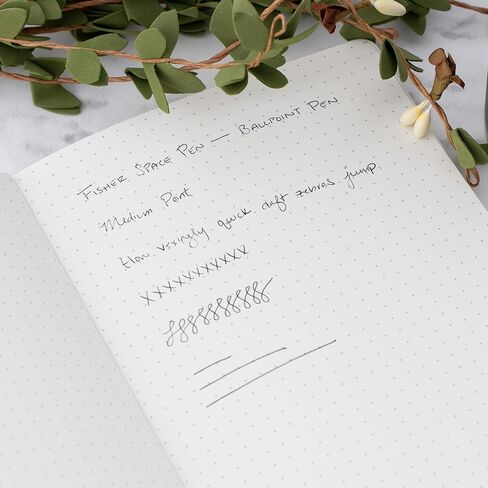 Fisher Space Pen — Ballpoint Pen
Medium Point
How vexingly quick daft zebras jump.
XXXXXXXXXXX